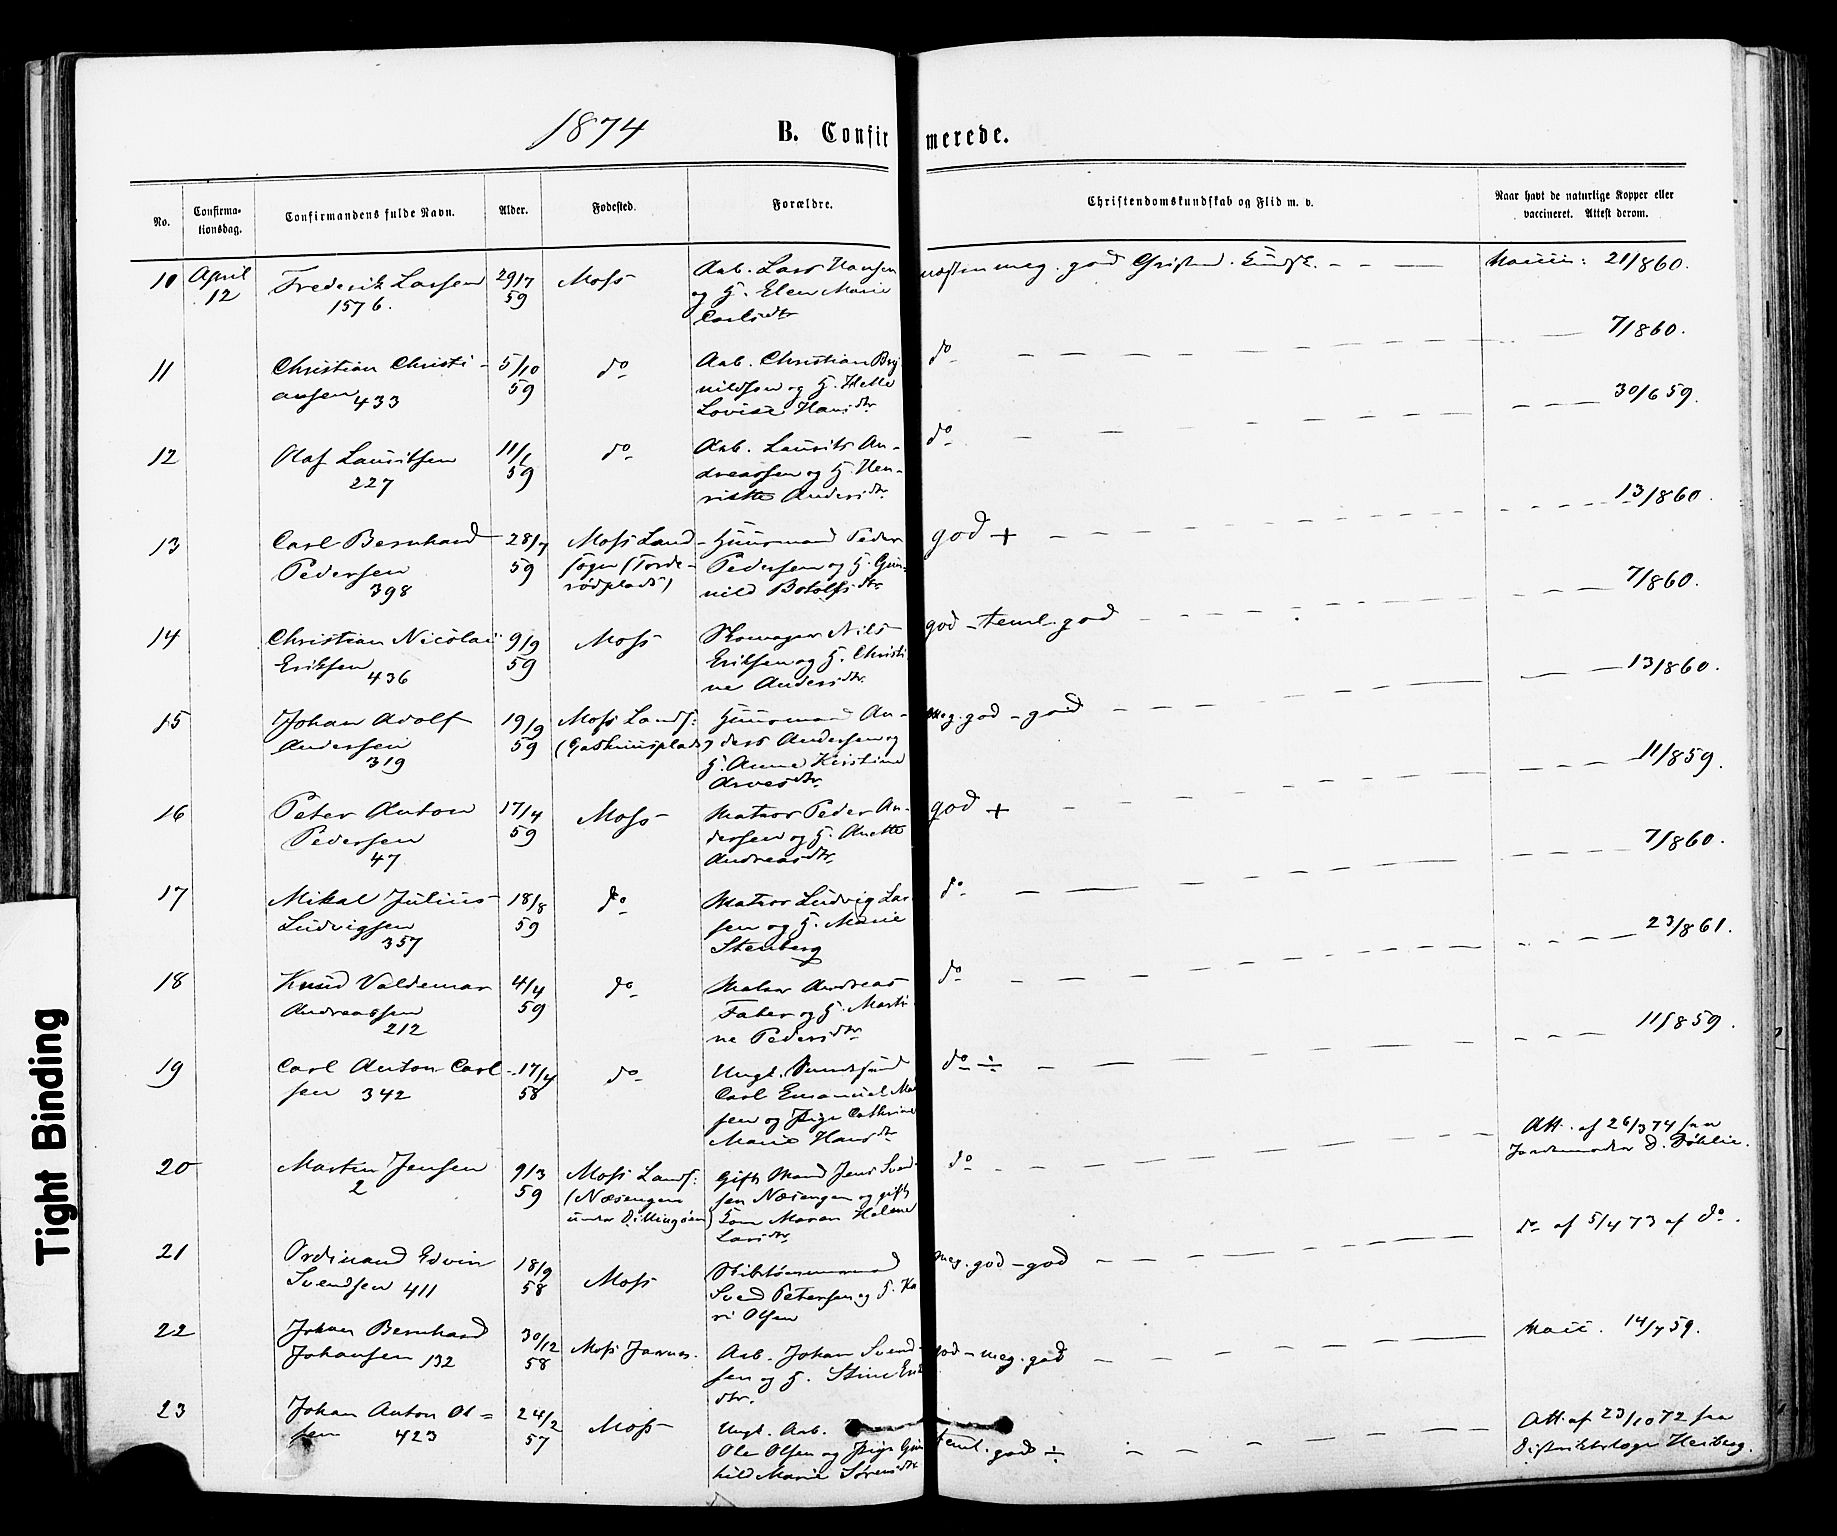 1874
B. Confirmerede.
No.
Confirma-
tionsdag.
Confirmandens fulde Navn.
Alder.
Fødested.
Forældre.
Christendomskundskab og Flid m. v.
Naar havt de naturlige Kopper eller
vaccineret. Attest derom.
10 April 12
Frederik Larsen
1576.
29/7
59
Moss
Arb. Lars Hansen
og H. Elen Marie
Carlsdtr
næsten meg. god Christend. Kundsk. - - -
Vaccin: 21/860.
11
Christian Christi-
ansen 433
5/10
59
do
Arb. Christian Bry
nildsen og H. Helle
Lovise Hansdtr
do
7/860.
12
Olaf Lauritsen
227
11/1
59
do
Arb. Laurits An-
dreassen og H. Hen-
riette Andersdtr
do
30/6 59.
13
Carl Bernhard
Pedersen
398
28/7
59
Moss Land-
sogn (Torde-
rødplads)
Huusmand Peder
Pedersen og H. Gun-
nild Botolfsdtr
god +
13/860.
14
Christian Nicolai
Eriksen
436
9/9
59
Moss
Skomager Nils
Eriksen og H. Christi
ne Andersdtr.
god - teml. god
7/860.
15
Johan Adolf
Andersen
319
19/9
59
Moss Lands:
(Gashuusplads)
Huusmand An-
ders Andersen og
H. Anne Kirstine
Arvesdtr.
meg. god - god
13/860.
16
Peter Anton
Pedersen
47
17/4
59
Moss
Matros Peder An-
dersen og H. Anette
Andreasdtr.
god +
11/859.
17
Mikal Julius
Ludvigsen
357
18/8
59
do
Matros Ludvig Lar
sen og H. Marie
Stenberg
do
7/860.
18
Knud Valdemar
Andreassen
212
4/4
59
do
Matros Andreas
Faber og H. Marti
ne Pedersdtr.
do
23/861.
19
Carl Anton Carl-
sen 342
17/4
58
do
Ungk.
Carl Emanuel
sen og Pige Cathrine
Marie Hansdtr
do ÷
11/859.
20
Martin Jensen
2
9/3
59
Moss Lands:
(Næsengen
under Dillingøen)
Gift Mand Jens Svend-
sen Næsengen og gift
Kone Maren Helene
Larsdtr.
do
Att. af 26/3 74 fra
Jordemoder D. Døhlie.
21
Ordinand Edvin
Svendsen 411
18/9
58
Moss
Skibstømmermand
Svend Petersen og H. Ka
ri Olsen
meg. god - god
do af 5/4 73 af do.
22
Johan Bernhard
Johansen 132
30/12
58
Moss Jernv.
Arb. Johan Svend-
sen og H. Stine
dtr.
god - meg. god
Vacc. 14/7 59.
23
Johan Anton Ol-
sen 423
24/2
57
Moss
Ungk. Arb.
Ole Olsen og Pige Gun
hild Marie Sørensdtr
teml. god ÷
Att. af 23/10 72 fra
Distriktslæge Heiberg.
Tight Binding